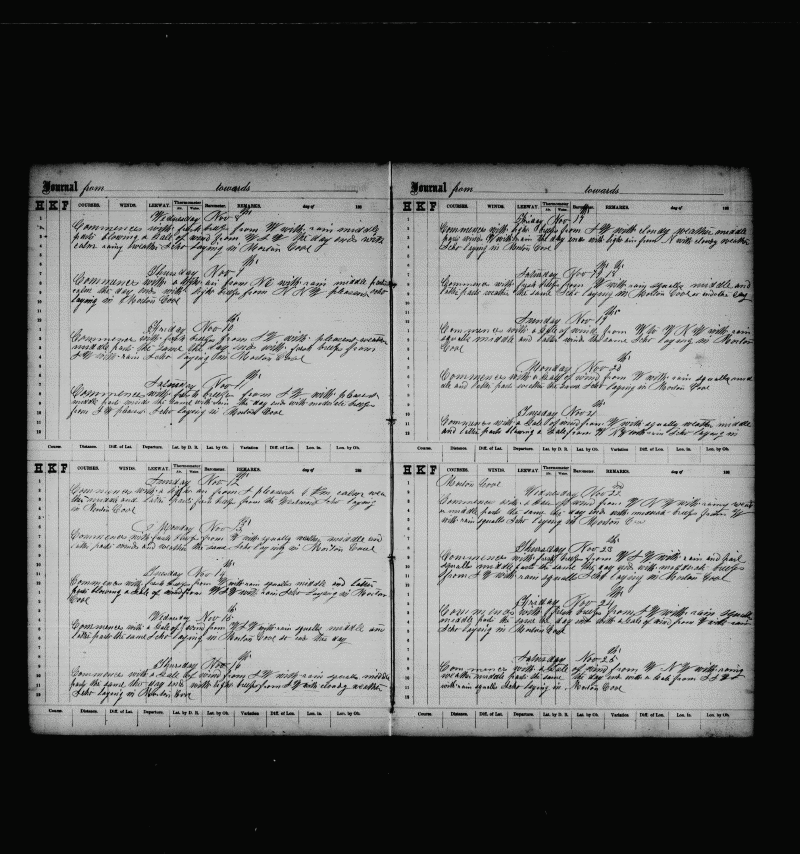 Journal from towards
H K F COURSES. WINDS. LEEWAY. Thermometer Air. Water. Barometer. REMARKS. day of 188
Wednesday Nov 8th
Commences with fresh breeze from W with rain middle
parts blowing a Gale of wind from W the day ends with
calm rainy weather Schr laying in Morton Cove
Thursday Nov 9th
Commences with a light air from NE with rain middle parts
calm the day ends with light breeze from N N W pleasant Schr
laying in Morton Cove
Friday Nov 10th
Commences with fresh breeze from S W with pleasant weather
middle part the same the day ends with fresh breeze from
S W with rain Schr laying in Morton Cove
Saturday Nov 11th
Commences with fresh breeze from S W with pleasant
middle part the same the day ends with moderate breeze
from S W pleasant Schr laying in Morton Cove
Course. Distance. Diff. of Lat. Departure. Lat. by D. R. Lat. by Ob. Variation Diff. of Lon. Lon. In. Lon. by Ob.
H K F COURSES. WINDS. LEEWAY. Thermometer Air. Water. Barometer. REMARKS. day of 188
Sunday Nov 12th
Commences with a light air from pleasant calm
middle and latter parts fresh breeze from the Westward Schr laying
in Morton Cove
Monday Nov 13th
Commences with fresh breeze from W with squally weather middle and
latter parts winds and weather the same Schr laying in Morton Cove
Tuesday Nov 14th
Commences with fresh breeze from W with rain squalls middle and latter
parts blowing a Gale of wind from W S W with rain Schr laying in Morton
Cove
Wednesday Nov 15th
Commences with a Gale of wind from W S W with rain squalls middle and
latter parts the same Schr laying in Morton Cove so ends this day
Thursday Nov 16th
Commences with a Gale of wind from S W with rain squalls middle
parts the same the day ends with light breeze from S W with cloudy weather
Schr laying in Morton Cove
Course. Distance. Diff. of Lat. Departure. Lat. by D. R. Lat. by Ob. Variation Diff. of Lon. Lon. In. Lon. by Ob.
Journal from towards
H K F COURSES. WINDS. LEEWAY. Thermometer Air. Water. Barometer. REMARKS. day of 188
Friday Nov 17th
Commences with light breeze from S W with cloudy weather middle
parts with rain the day ends with light air from N with cloudy weather
Schr laying in Morton Cove
Saturday Nov 18th
Commences with fresh breeze from W with rain squalls middle and
latter parts weather the same Schr laying in Morton Cove so ends this day
Sunday Nov 19th
Commences with a Gale of wind from W N W with rain
squalls middle and latter winds the same Schr laying in Morton
Cove
Monday Nov 20th
Commences with a Gale of wind from W with rain squalls mid
dle and latter parts weather the same Schr laying in Morton Cove
Tuesday Nov 21st
Commences with a Gale of wind from W with squally weather middle
and latter parts blowing a Gale from W N W with rain Schr laying in
Course. Distance. Diff. of Lat. Departure. Lat. by D. R. Lat. by Ob. Variation Diff. of Lon. Lon. In. Lon. by Ob.
H K F COURSES. WINDS. LEEWAY. Thermometer Air. Water. Barometer. REMARKS. day of 188
Morton Cove
Wednesday Nov 22nd
Commences with a Gale of wind from W N W with rainy weat
r middle parts the same the day ends with moderate breeze from W
with rain squalls Schr laying in Morton Cove
Thursday Nov 23th
Commences with fresh breeze from W S W with rain and hail
squalls middle parts the same the day ends with moderate breeze
from S W with rain squalls Schr laying in Morton Cove
Friday Nov 24th
Commences with fresh breeze from S W with rain squalls
middle parts the same the day ends with a Gale of wind from W with rain
Schr laying in Morton Cove
Saturday Nov 25th
Commences with a Gale of wind from W N W with rainy
weather middle parts the same the day ends with a Gale from
with rain squalls Schr laying in Morton Cove
Course. Distance. Diff. of Lat. Departure. Lat. by D. R. Lat. by Ob. Variation Diff. of Lon. Lon. In. Lon. by Ob.